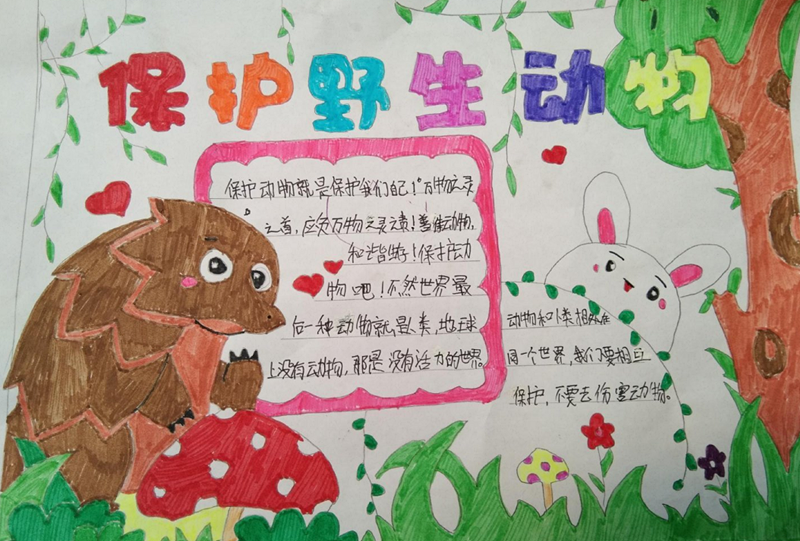 保护野生动物
保护动物就是保护我们自己！万物之灵
之首，应负万物之灵之责！善待动物，
和谐相处！保护动
物吧！不然世界最
后一种动物就是人类，地球
上没有动物，那是没有活力的世界。
动物和人类相处在
同一个世界，我们要相互
保护，不要去伤害动物。